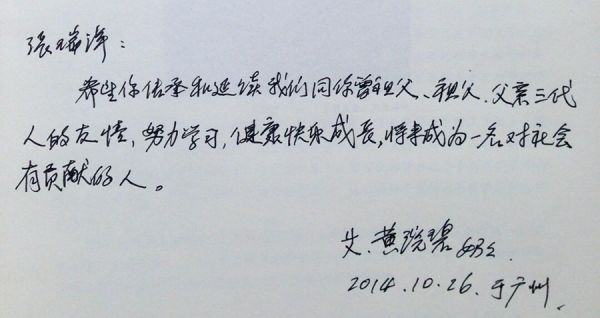 张瑞洋：
希望你传承和延续我们同你曾祖父、祖父、父亲三代
人的友情，努力学习，健康快乐成长，将来成为一名对社会
有贡献的人。
黄琓碧
2014.10.26.于广州.